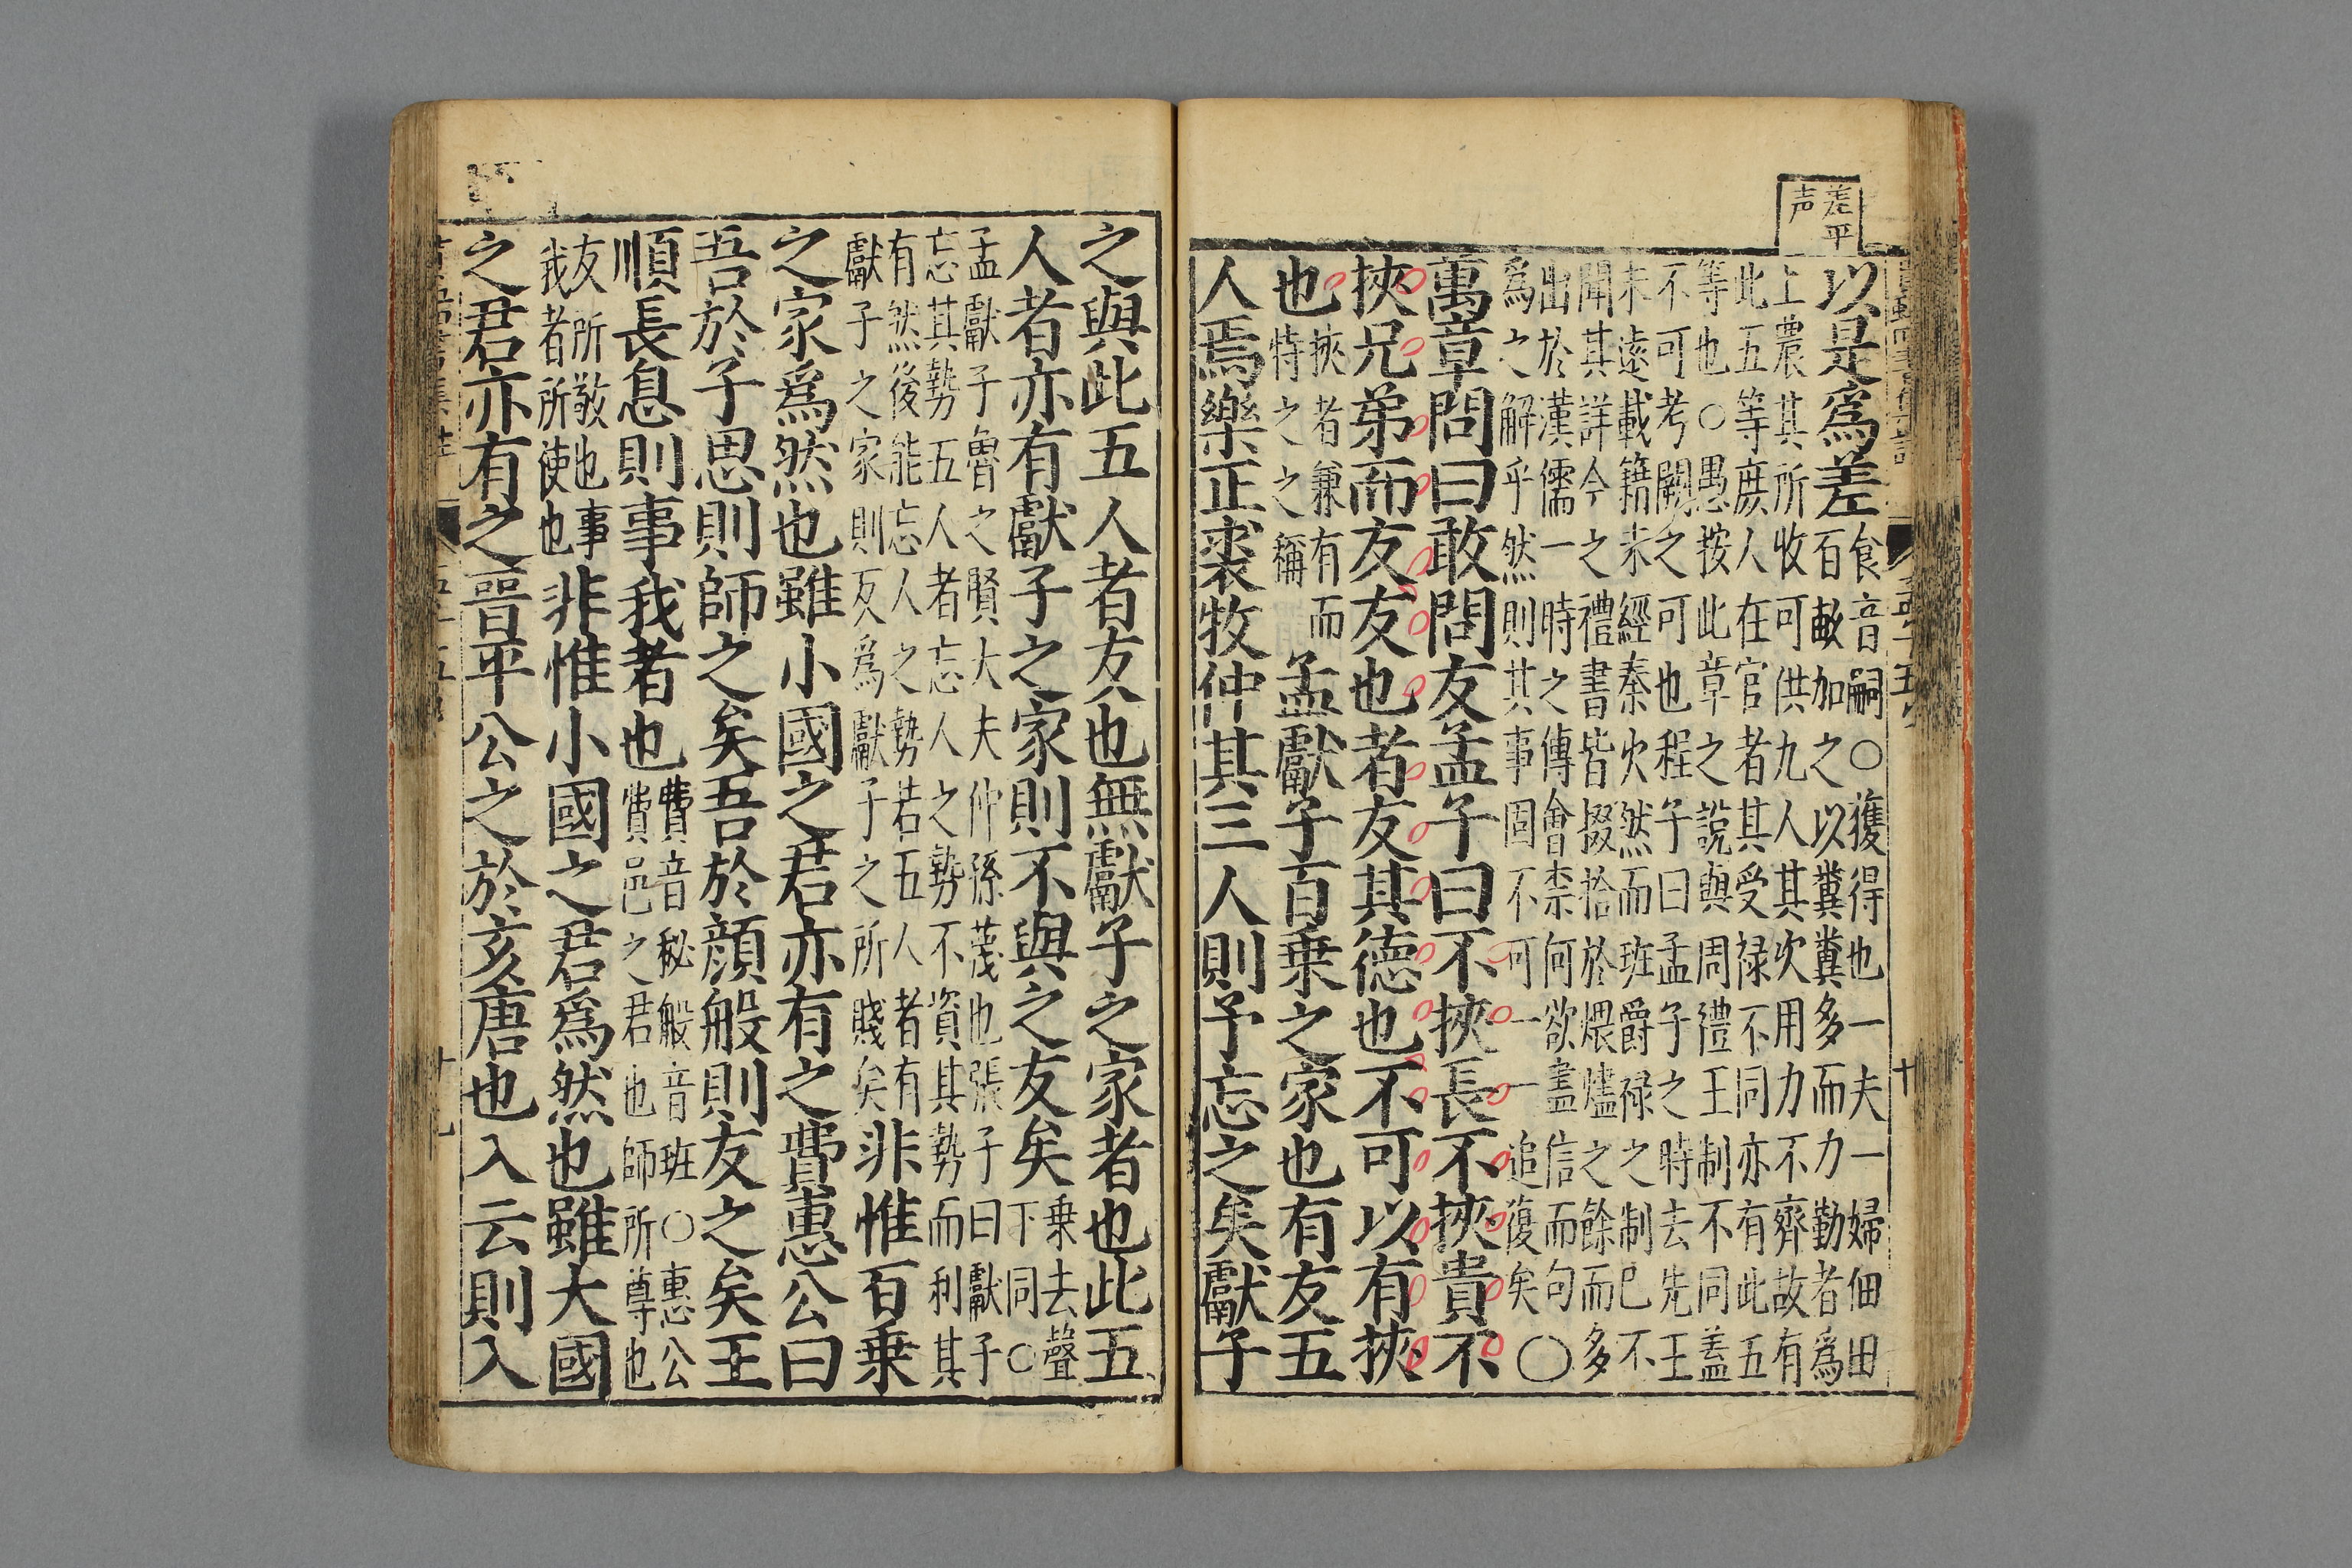 差平
声
以是爲差食音嗣○獲得也一夫一婦佃田
百畝加之以糞糞多而力勤者爲
上農其所收可供九人其次用力不齊故有
此五等庶人在官者其受禄不同亦有此五
等也○愚按此章之說與周禮王制不同蓋
不可考闕之可也程子曰孟子之時去先王
未遠載籍未經秦火然而班爵禄之制已不
聞其詳今之禮書皆掇拾於煨燼之餘而多
出於漢儒一時之傳會柰何欲盡信而句
爲之解乎然則其事固不可一一追復矣○
萬章問曰敢問友孟子曰不挾長不挾貴不
挾兄弟而友友也者友其德也不可以有挾
也挾者兼有而
特之之稱
孟獻子百乗之家也有友五
人焉樂正裘牧仲其三人則予忘之矣獻子
之與此五人者友也無獻子之家者也此五
人者亦有獻子之家則不與之友矣乗去聲
下同○
孟獻子魯之賢大夫仲孫蔑也張子曰獻子
忘其勢五人者忘人之勢不資其勢而利其
有然後能忘人之勢若五人者有
獻子之家則反爲獻子之所賤矣
非惟百乗
之家爲然也雖小國之君亦有之費惠公曰
吾於子思則師之矣吾於顔般則友之矣王
順長息則事我者也費音秘般音班○惠公
費邑之君也師所尊也
友所敬也事
我者所使也
非惟小國之君爲然也雖大國
之君亦有之晉平公之於亥唐也入云則入